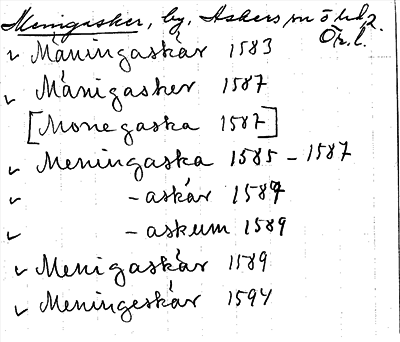 Menigasker, by, Askers sn ö hd,
Ör. l.
✓ Måningaskår 1583
✓ Månigasker 1587
[Monegaska 1587]
✓ Meningaska 1585 - 1587
✓ - askår 1587
✓ - askum 1589
✓ Menigaskår 1589
✓ Meningeskår 1594